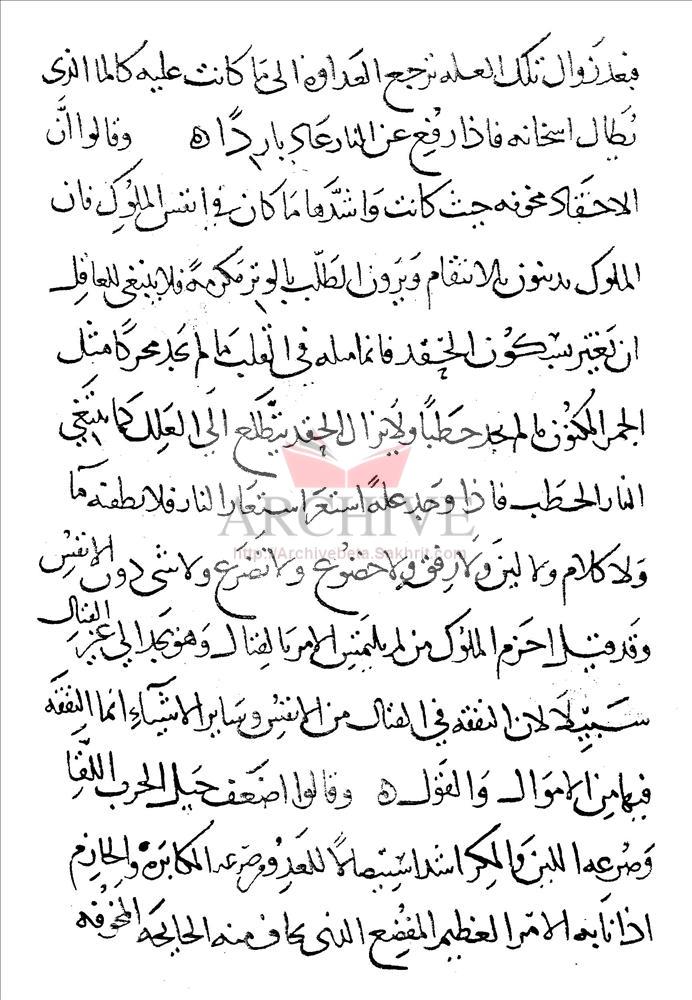 فبعد زوال تلك العله ترجع العداوه الى ما كانت عليه كالما الذى
يُطال اسخانه فاذا رفع عن النار عاد باردًا ه وقالوا انَّ
الاحقاد مخوفه حيث كانت واشدّها ما كان في انفس الملوك فان
الملوك يدينون بالانتقام ويرون الطلب بالوتر مكرمةً فلا ينبغى للعاقل
ان يغتر بسكون الحقد فانما مثله في القلب ما لم يجد محركًا مثل
الجمر المكنون ما لم يجد حطبًا ولا يزال الحقد يتطلع الى العلل كما تبتغي
النار الحطب فاذا وجد علةً استعر استعار النار فلا يطفئه مآ
ولا كلام ولا لين ولا رفق ولا خضوع ولا تضرع ولا شى دون الانفس
وقد قيل احزم الملوك من لم يلتمس الامر بالقتال وهو يجد الي غير القتال
سبيلًا لان النفقه في القتال من الانفس وساير الاشيآء انما النفقه
فيها من الاموال والقول ه وقالوا اضعف حيل الحرب اللقا
وصرعه اللين والمكر اشد استيصالًا للعدو من صرعه المكابره والحازم
اذا نابه الامر العظيم المفضع الذى يخاف منه الجايحه المخوفه
ARCHIVE
http://Archivebeta.Sakhrit.com